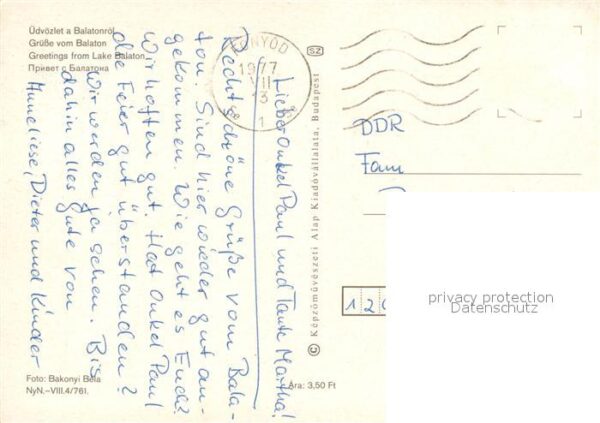 Üdvözlet a Balatonról
Grüße vom Balaton
Greetings from Lake Balaton
Привет с Балатона
FONYÓD
1977
VII
13
1
SZ
Lieber Onkel Paul und Tante Martha!
Recht schöne Grüße vom Bala-
ton. Sind hier wieder gut an-
gekommen. Wie geht es Euch?
Wir hoffen gut. Hat Onkel Paul
die Feier gut überstanden?
Wir werden ja sehen. Bis
dahin alles gute von
Anneliese, Dieter und Kinder
© Képzőművészeti Alap Kiadóvállalata, Budapest
DDR
Fam
120
privacy protection
Datenschutz
Foto: Bakonyi Béla
NyN.–VIII.4/761.
Ára: 3,50 Ft